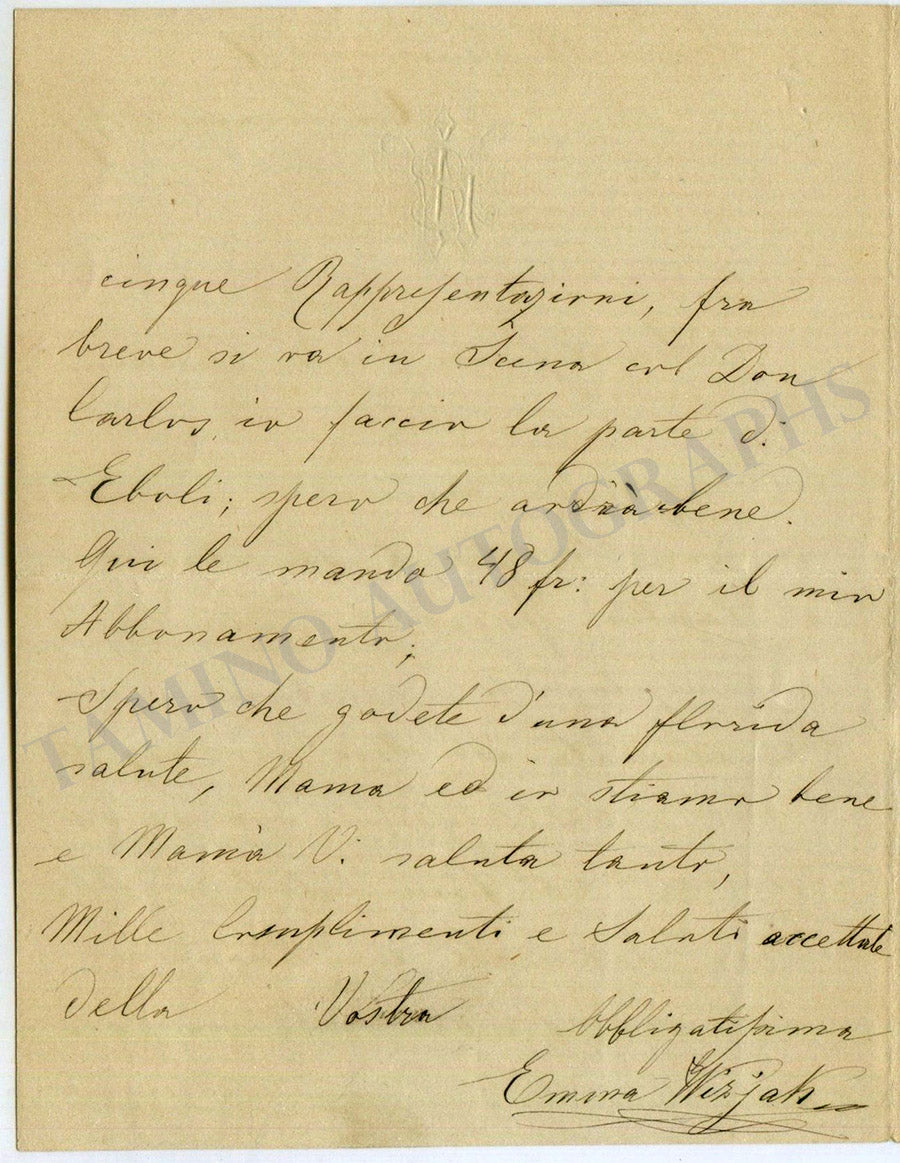 cinque Rappresentazioni, fra
breve si va in Scena col Don
Carlos, io faccio la parte di
Eboli; spero che andrà bene.
Qui le mando 48 fr: per il mio
Abbonamento;
Spero che godete d'una florida
salute, Mama ed io stiamo bene
e Mamà Vi saluta tanto,
Mille Complimenti e Saluti accettate
della Vostra Obbligatissima
Emma Wizjak
TAMINO AUTOGRAPHS